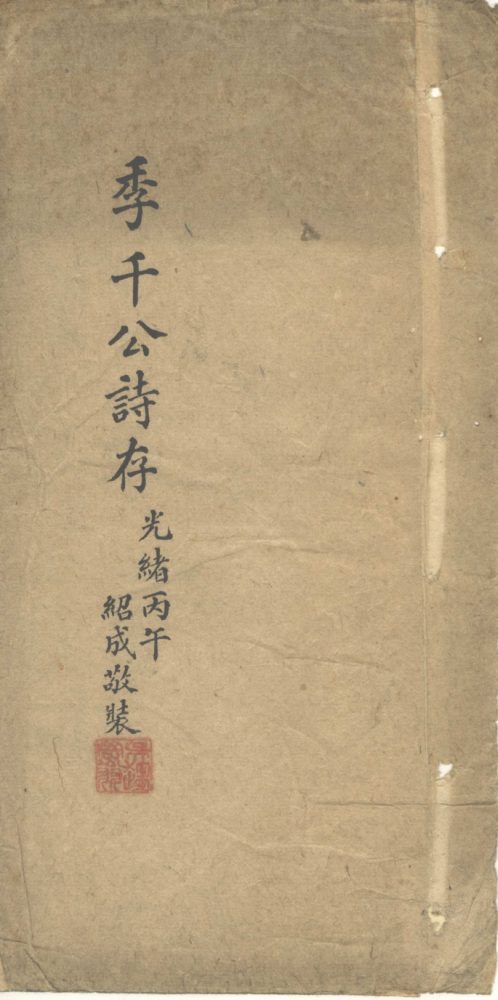 季千公詩存
光緒丙午
紹成敬裝